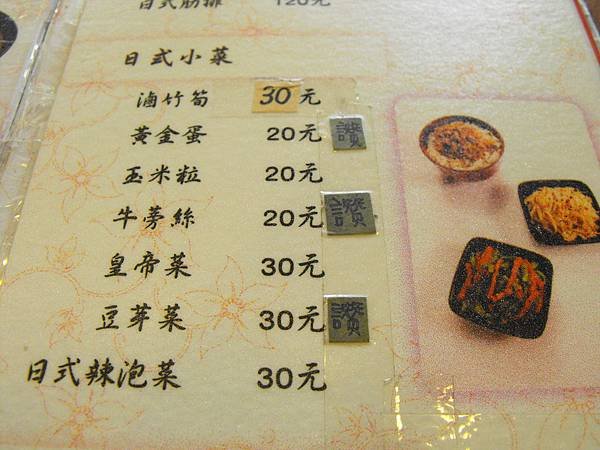 日式肋排 120元
日式小菜
滷竹筍 30元
黃金蛋 20元 讚
玉米粒 20元
牛蒡絲 20元 讚
皇帝菜 30元
豆芽菜 30元 讚
日式辣泡菜 30元